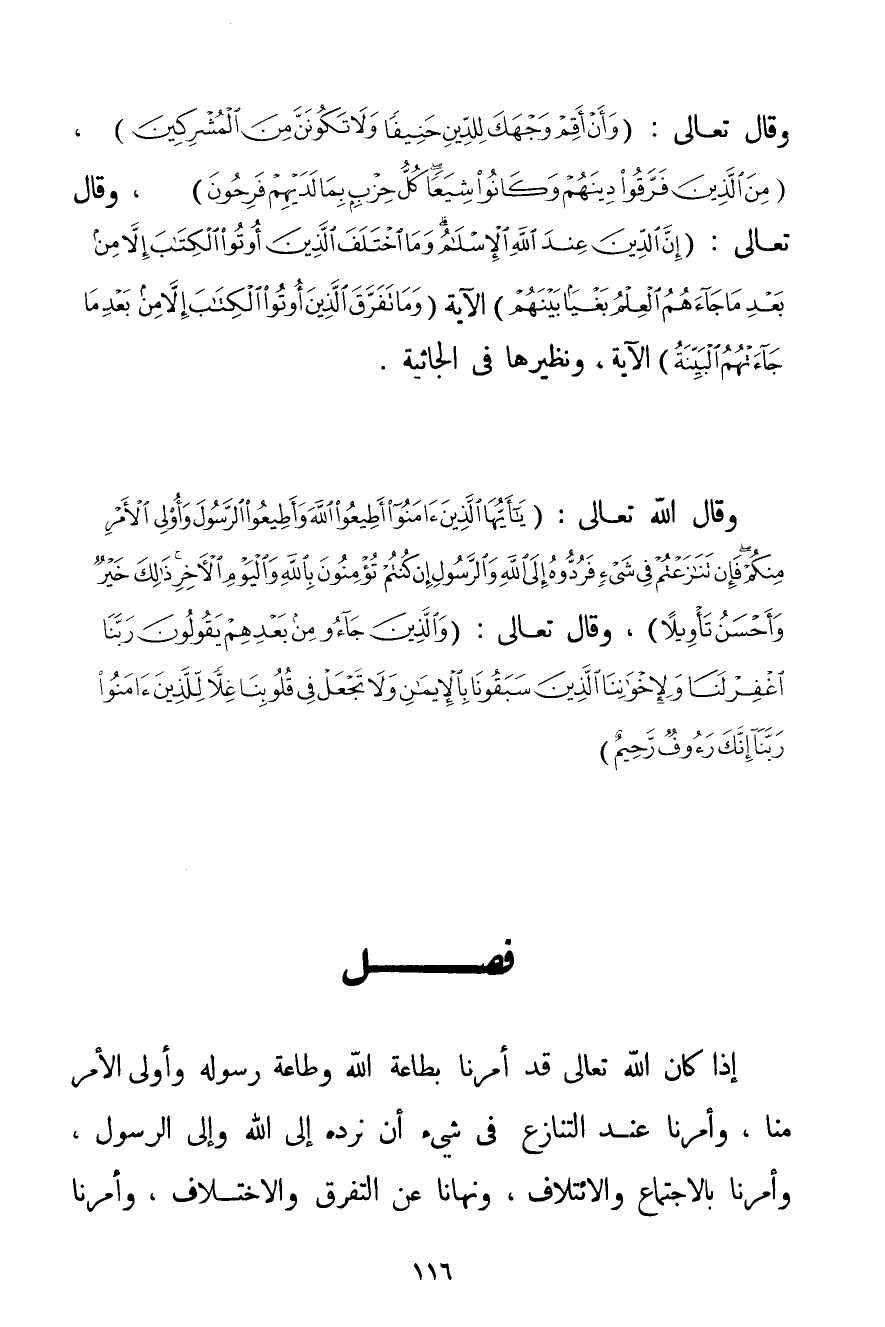 وقال تعالى : ( وَأَنْ أَقِمْ وَجْهَكَ لِلدِّينِ حَنِيفًا وَلَا تَكُونَنَّ مِنَ ٱلْمُشْرِكِينَ ) ،
( مِنَ ٱلَّذِينَ فَرَّقُوا۟ دِينَهُمْ وَكَانُوا۟ شِيَعًا ۖ كُلُّ حِزْبٍۭ بِمَا لَدَيْهِمْ فَرِحُونَ ) ، وقال
تعالى : ( إِنَّ ٱلدِّينَ عِندَ ٱللَّهِ ٱلْإِسْلَٰمُ ۗ وَمَا ٱخْتَلَفَ ٱلَّذِينَ أُوتُوا۟ ٱلْكِتَٰبَ إِلَّا مِنۢ
بَعْدِ مَا جَآءَهُمُ ٱلْعِلْمُ بَغْيًۢا بَيْنَهُمْ ) الآية ( وَمَا تَفَرَّقَ ٱلَّذِينَ أُوتُوا۟ ٱلْكِتَٰبَ إِلَّا مِنۢ بَعْدِ مَا
جَآءَتْهُمُ ٱلْبَيِّنَةُ ) الآية ، ونظيرها فى الجاثية .
وقال الله تعالى : ( يَٰٓأَيُّهَا ٱلَّذِينَ ءَامَنُوٓا۟ أَطِيعُوا۟ ٱللَّهَ وَأَطِيعُوا۟ ٱلرَّسُولَ وَأُو۟لِى ٱلْأَمْرِ
مِنكُمْ ۖ فَإِن تَنَٰزَعْتُمْ فِى شَىْءٍ فَرُدُّوهُ إِلَى ٱللَّهِ وَٱلرَّسُولِ إِن كُنتُمْ تُؤْمِنُونَ بِٱللَّهِ وَٱلْيَوْمِ ٱلْءَاخِرِ ۚ ذَٰلِكَ خَيْرٌ
وَأَحْسَنُ تَأْوِيلًا ) ، وقال تعالى : ( وَٱلَّذِينَ جَآءُو مِنۢ بَعْدِهِمْ يَقُولُونَ رَبَّنَا
ٱغْفِرْ لَنَا وَلِإِخْوَٰنِنَا ٱلَّذِينَ سَبَقُونَا بِٱلْإِيمَٰنِ وَلَا تَجْعَلْ فِى قُلُوبِنَا غِلًّا لِّلَّذِينَ ءَامَنُوا۟
رَبَّنَآ إِنَّكَ رَءُوفٌ رَّحِيمٌ )
فصل
إذا كان الله تعالى قد أمرنا بطاعة الله وطاعة رسوله وأولى الأمر
منا ، وأمرنا عند التنازع فى شيء أن نرده إلى الله وإلى الرسول ،
وأمرنا بالاجتماع والائتلاف ، ونهانا عن التفرق والاختلاف ، وأمرنا
١١٦